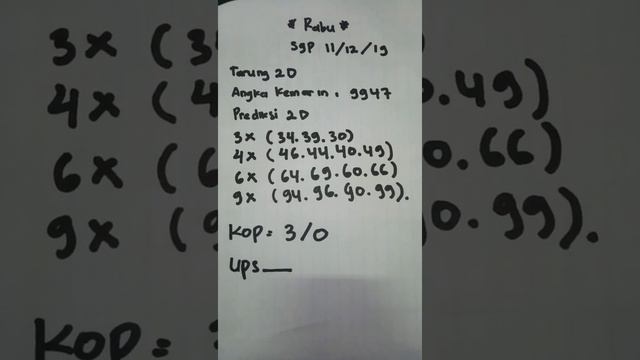 * Rabu *
Sgp 11/12/19
Tarung 2D
Angka Kemarin : 9947
Prediksi 2D
3x (34.39.30)
4x (46.44.40.49)
6x (64.69.60.66)
9x (94.96.90.99).
KOP = 3/0
Ups__